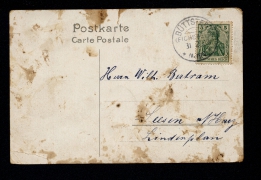 Postkarte
Carte Postale
Herrn Wilh. Bertram
Seesen a/Harz
Lindenplan